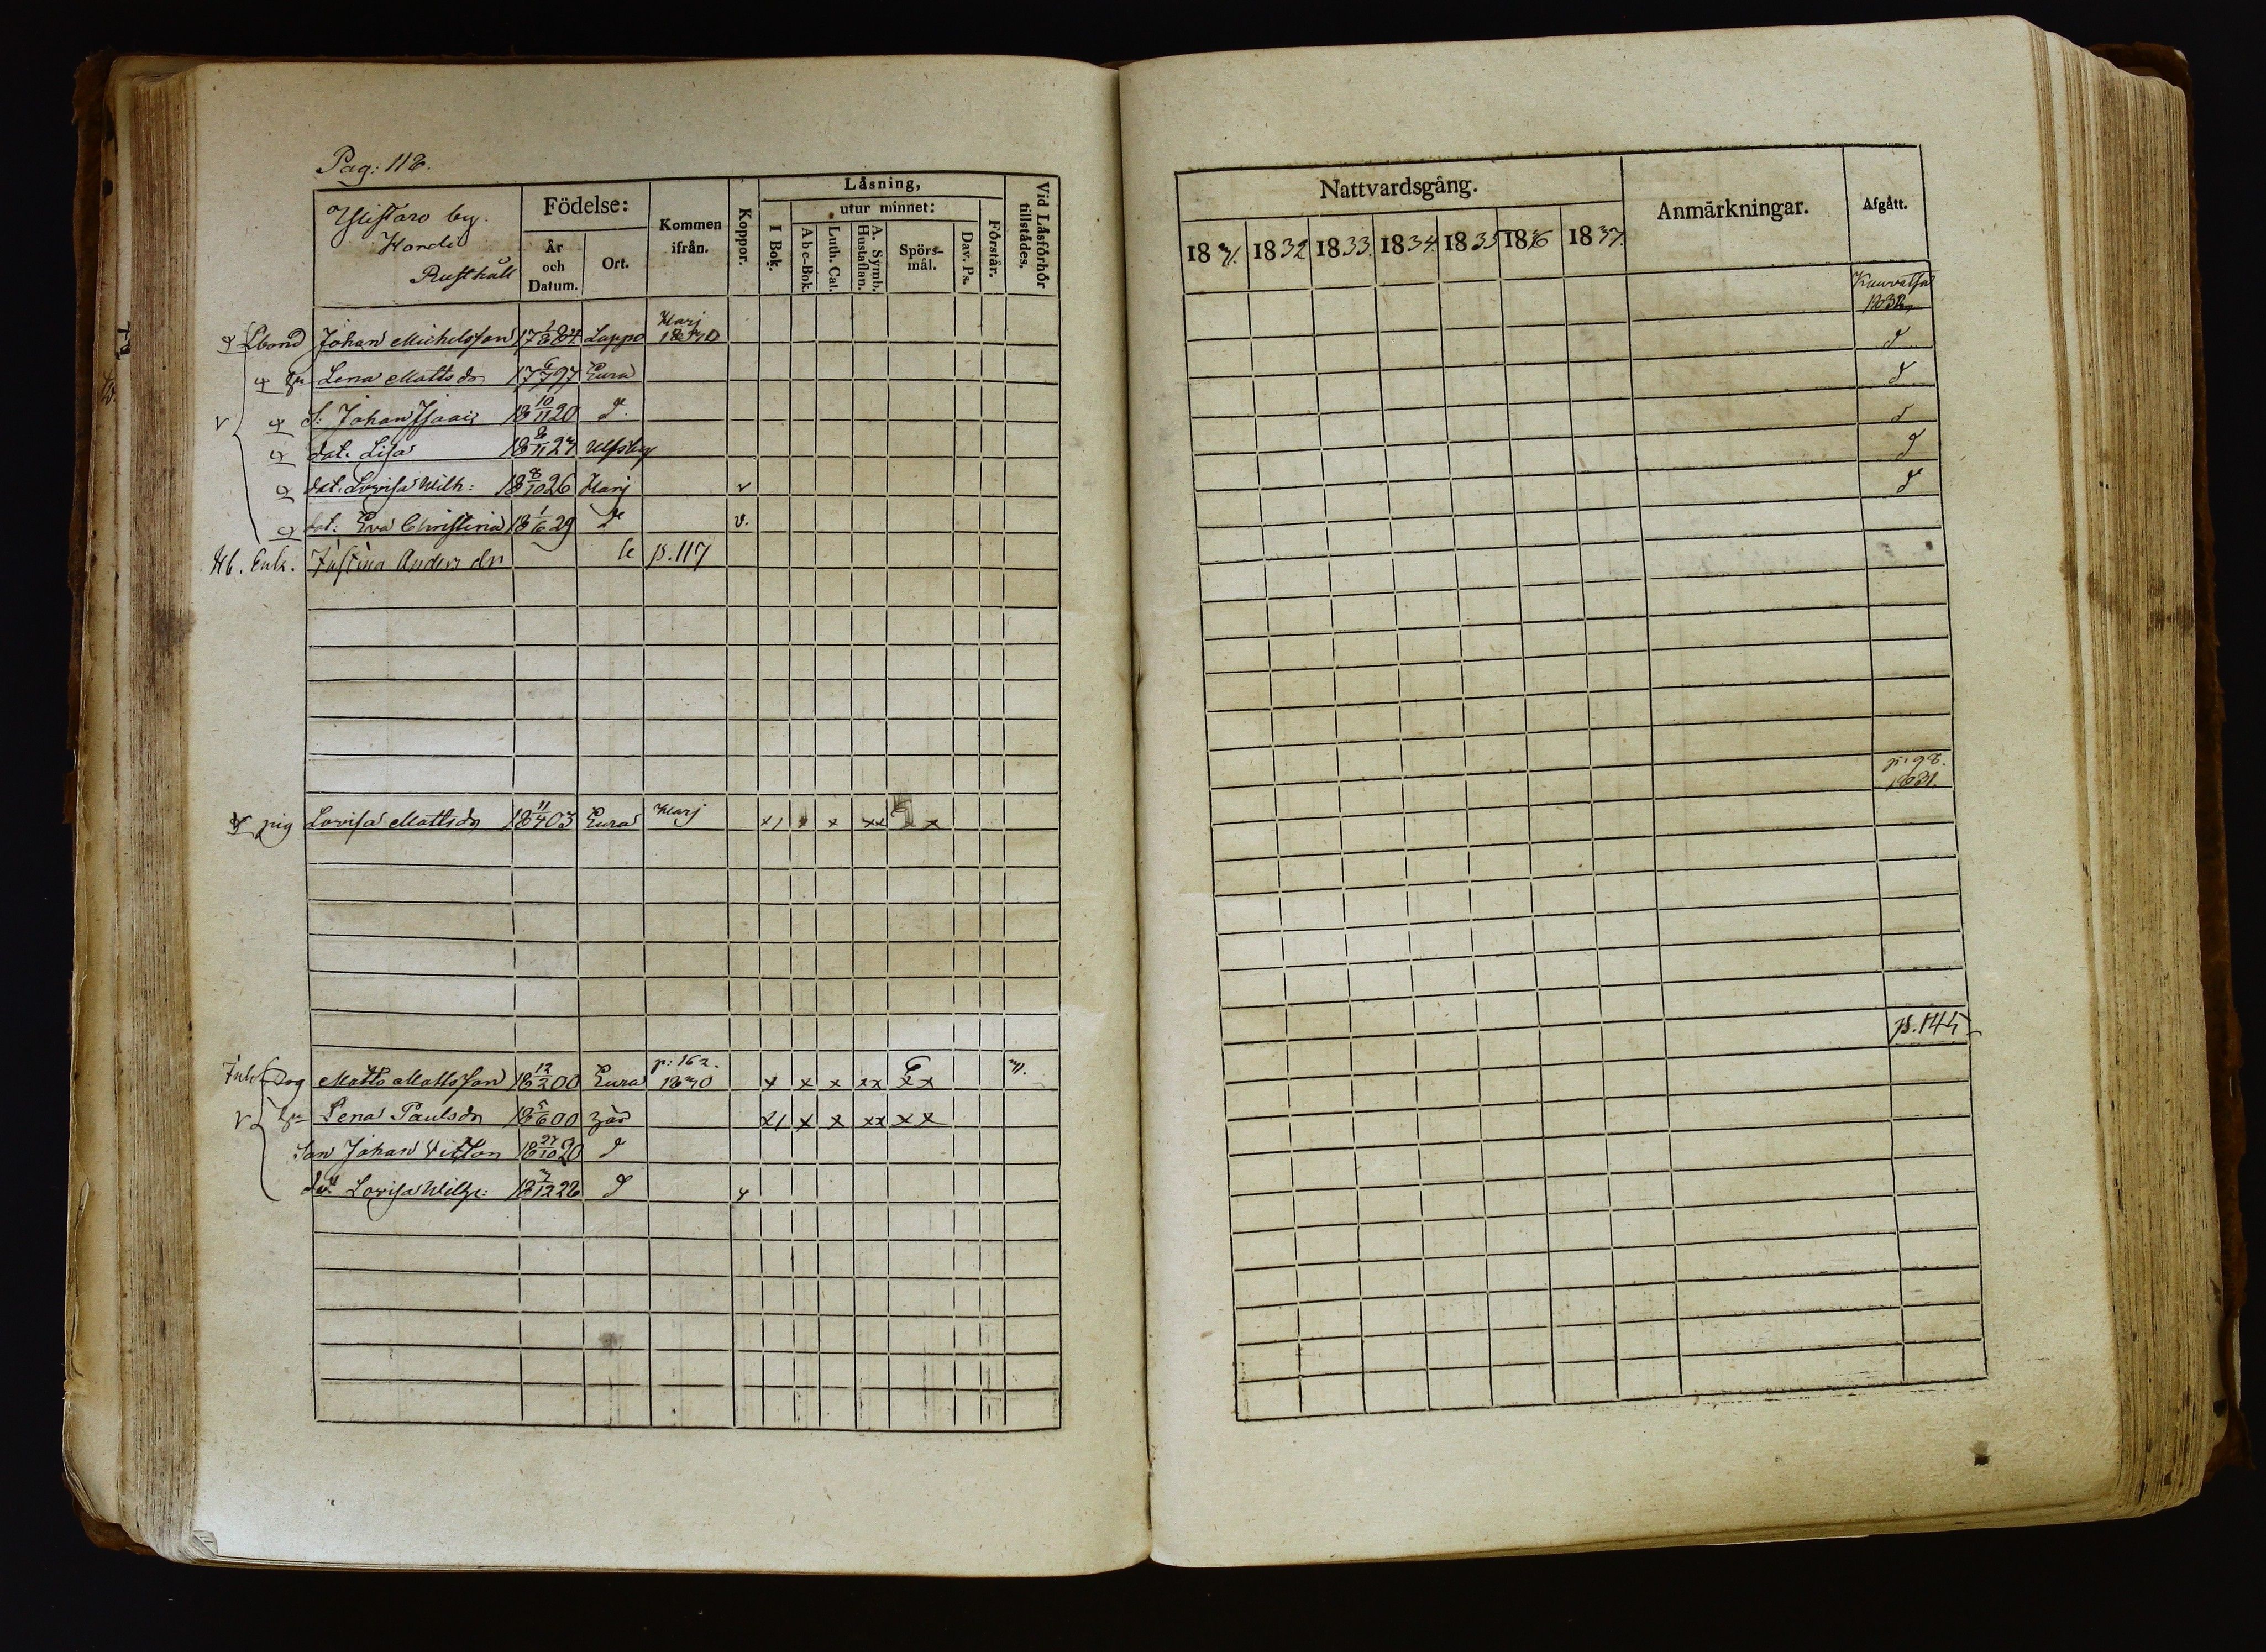 Pag: 118.
Ylistaro by.
Hondi
Rusthåll
Födelse:
År och Datum.
Ort.
Kommen ifrån.
Koppor.
Läsning,
I Bok.
utur minnet:
A b c-Bok.
Luth. Cat.
A. Symb. Hustaflan.
Spörs-mål.
Dav. Ps.
Förstår.
Vid Läsförhör tillstädes.
Nattvardsgång.
1831. 1832 1833. 1834. 1835 1836 1837.
Anmärkningar.
Afgått.
Lbond Johan Michelsson 17 1/2 84. Lappo Harj 1830 Kauvatsa 1832
hu Lena Mattsdr 17 6/7 97 Eura d
S: Johan Isaac 18 10/11 20 d d
dot. Lisa 18 2/11 23 Ulfsby d
dot. Lovisa Wilh: 18 8/10 26 Harj v d
dot: Eva Christina 18 1/6 29 d v. d
Hb. Enk. Justina Anders dr p. 117
pig Lovisa Mattsdr 18 11/4 03 Eura Harj x1 x x xx x x p: 98. 1831.
Inh. Drg Matts Mattsson 18 12/2 00 Eura p: 162. 1830 x x x xx xx 31. p. 145
hu Lena Paulsdr 18 5/6 00 x1 x x xx xx
Son Johan Victon 18 27/10 20 d
dot Lovisa Wilh: 18 3/12 28 d v